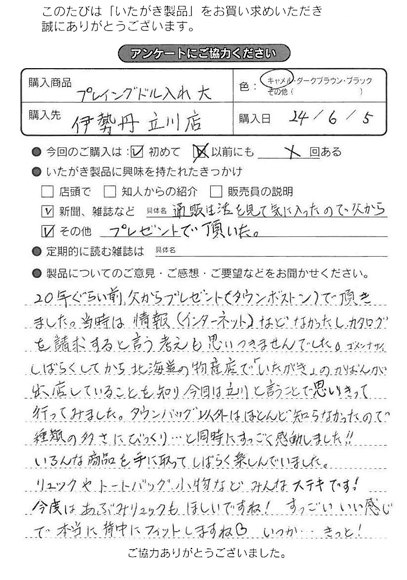 このたびは「いたがき製品」をお買い求めいただき
誠にありがとうございます。
アンケートにご協力ください
購入商品 プレイングドル入れ 大
色: キャメル・ダークブラウン・ブラック
その他( )
購入先 伊勢丹 立川店
購入日 24/6/5
● 今回のご購入は: 初めて 以前にも 回ある
● いたがき製品に興味を持たれたきっかけ
店頭で 知人からの紹介 販売員の説明
新聞、雑誌など 具体名 通販生活を見て気に入ったので、父から
その他 プレゼントで頂いた。
● 定期的に読む雑誌は 具体名
● 製品についてのご意見・ご感想・ご要望などをお聞かせください。
20年ぐらい前、父からプレゼント(タウンボストン)で頂き
ました。当時は情報(インターネット)などなかったし、カタログ
を請求すると言う考えも思いつきませんでした。ゴメンナサイ
しばらくしてから北海道の物産店で「いたがき」のかばんが
出店していることも知り今回は立川と言うことで思いきって
行ってみました。タウンバッグ以外はほとんど知らなかったので
種類の多さにびっくり…と同時にすっごく感動しました!!
いろんな商品を手に取ってしばらく楽しんでいました。
リュックやトートバッグ、小物など みんなステキです!
今度はあぶみリュックもほしいですね! すっごいいい感じ
で本当に背中にフィットしますね いつか… きっと!
ご協力ありがとうございました。